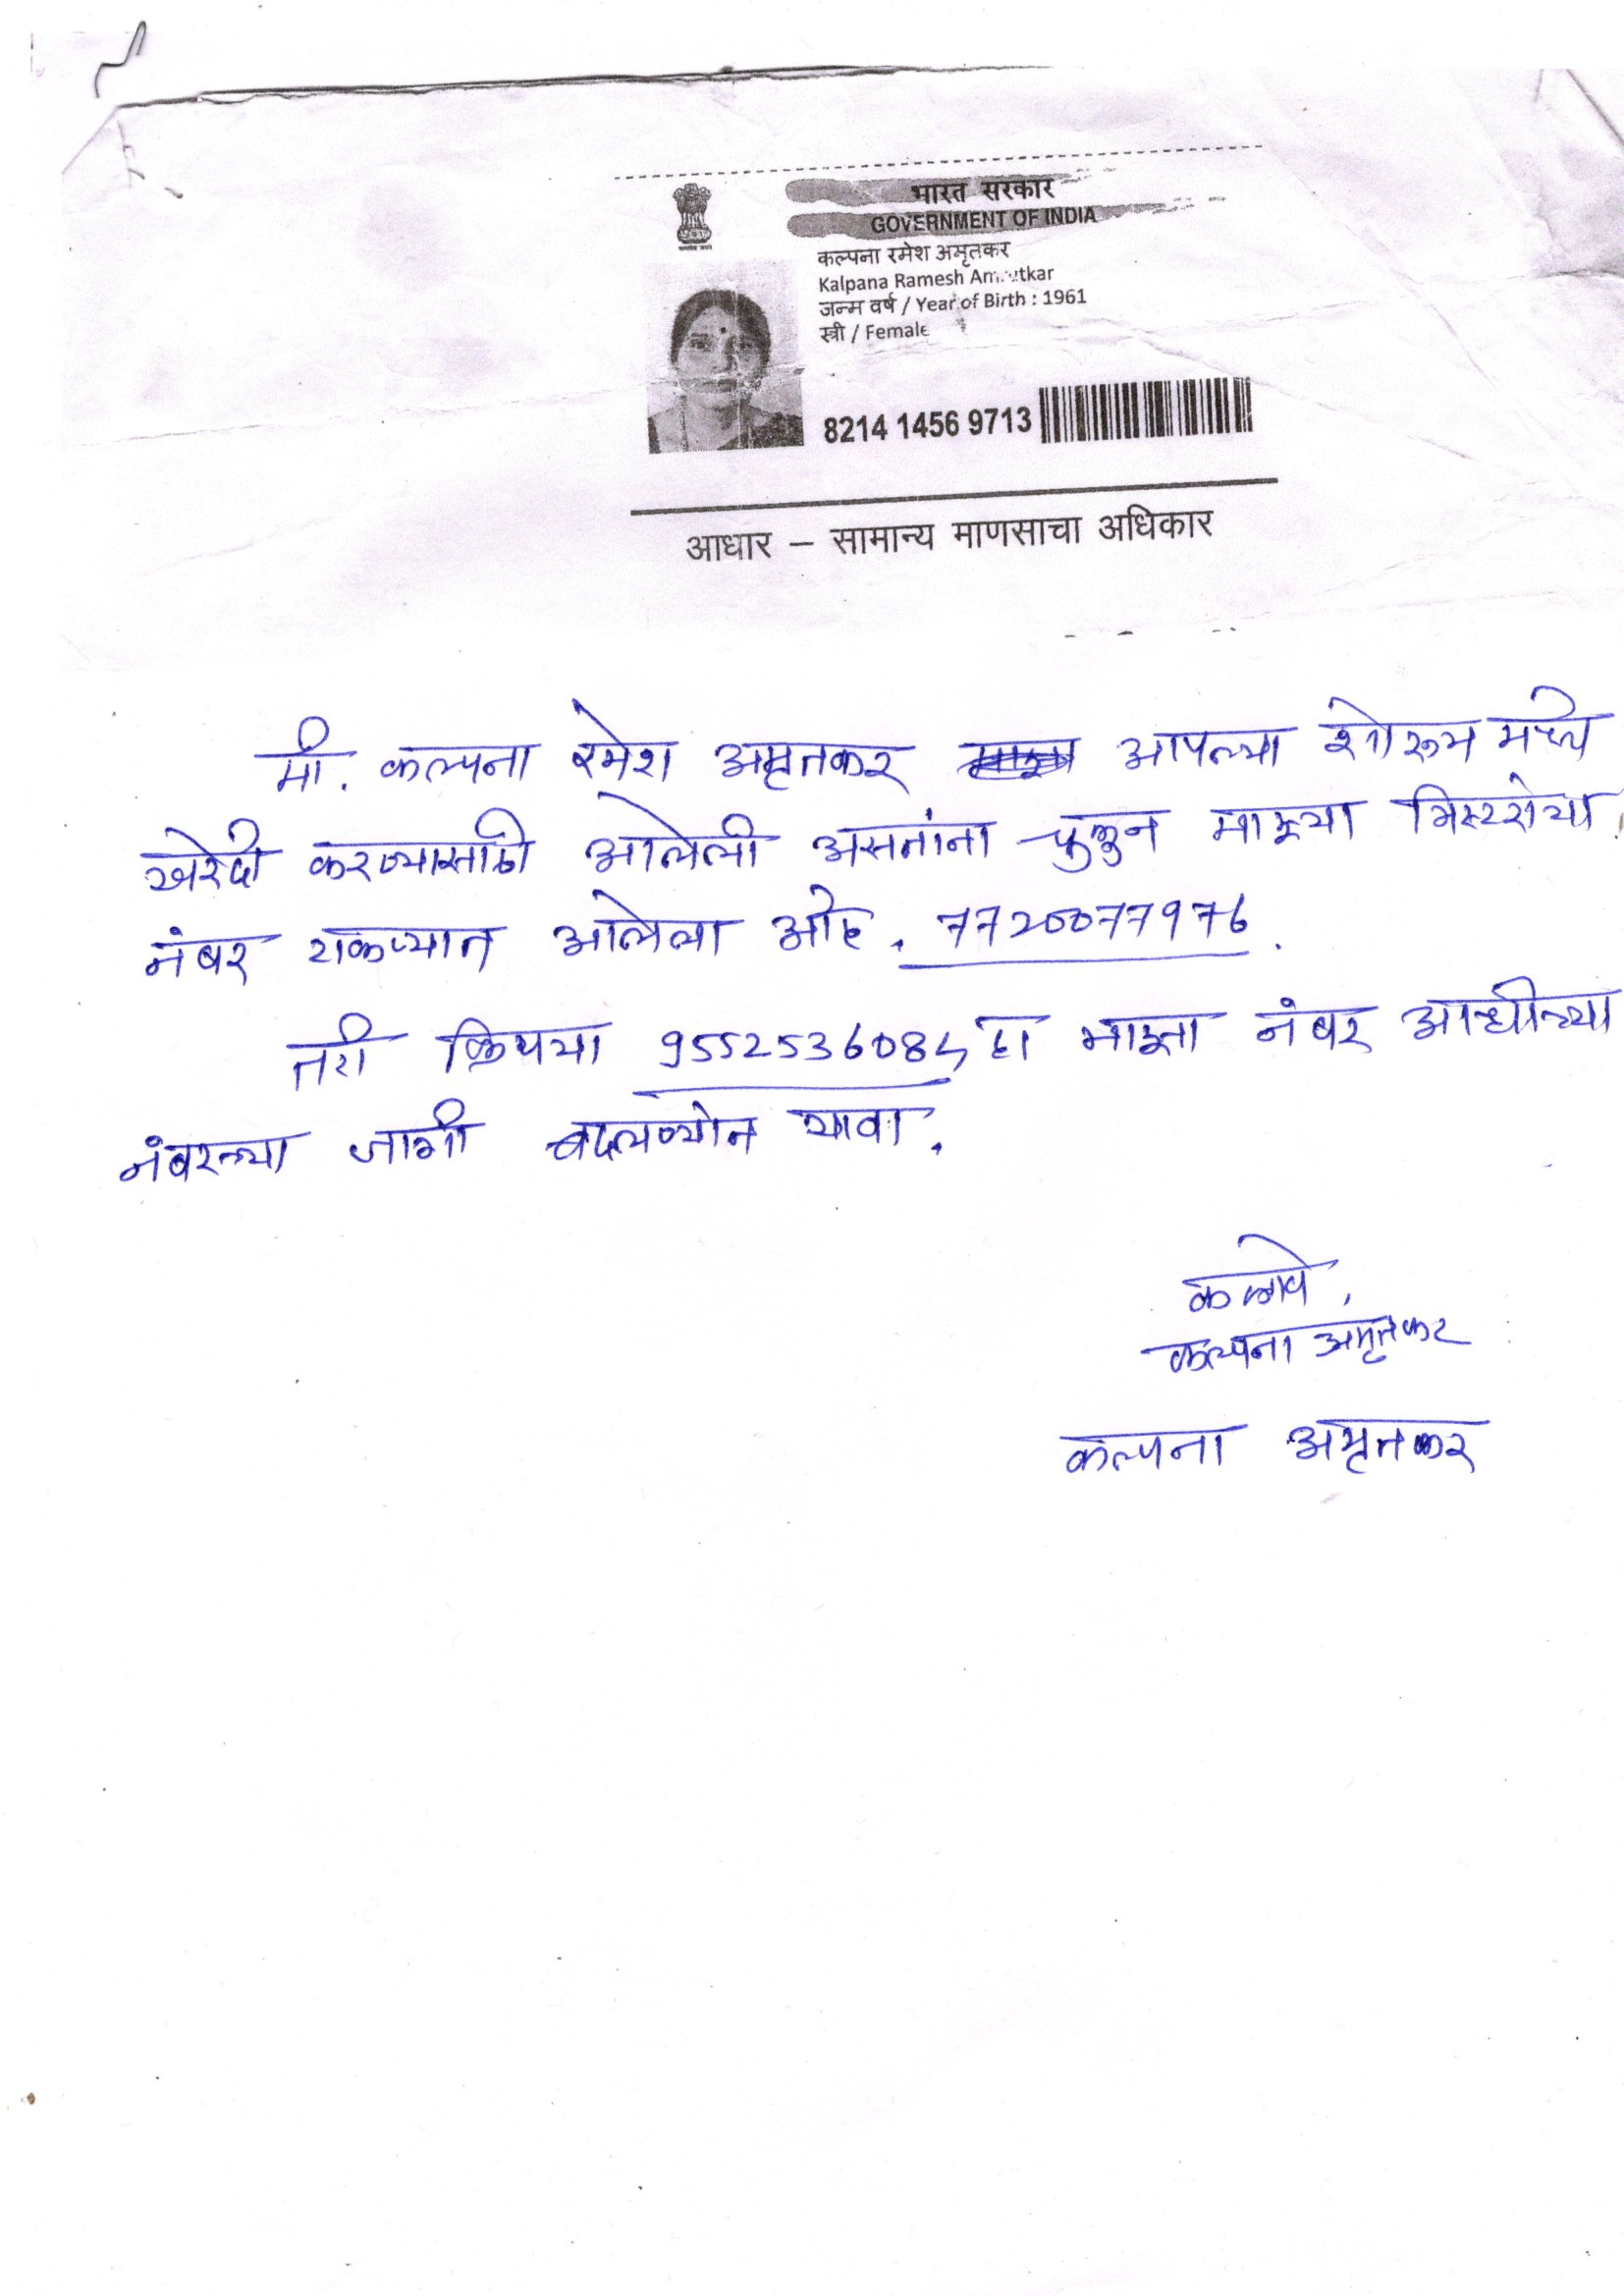 भारत सरकार
GOVERNMENT OF INDIA
कल्पना रमेश अमृतकर
Kalpana Ramesh
जन्म वर्ष / Year of Birth : 1961
स्त्री / Female
8214 1456 9713
आधार – सामान्य माणसाचा अधिकार
मी. कल्पना रमेश अमृतकर आपल्या शोरूम मध्ये
खरेदी करण्यासाठी आलेली असतांना चुकुन माझ्या मिस्टरांचा
नंबर टाकण्यात आलेला आहे. 7720077976.
तरी क्रिपया हा माझा नंबर आधीच्या
नंबरच्या जागी बदलण्यात यावा.
कळावे,
कल्पना अमृतकर
कल्पना अमृतकर